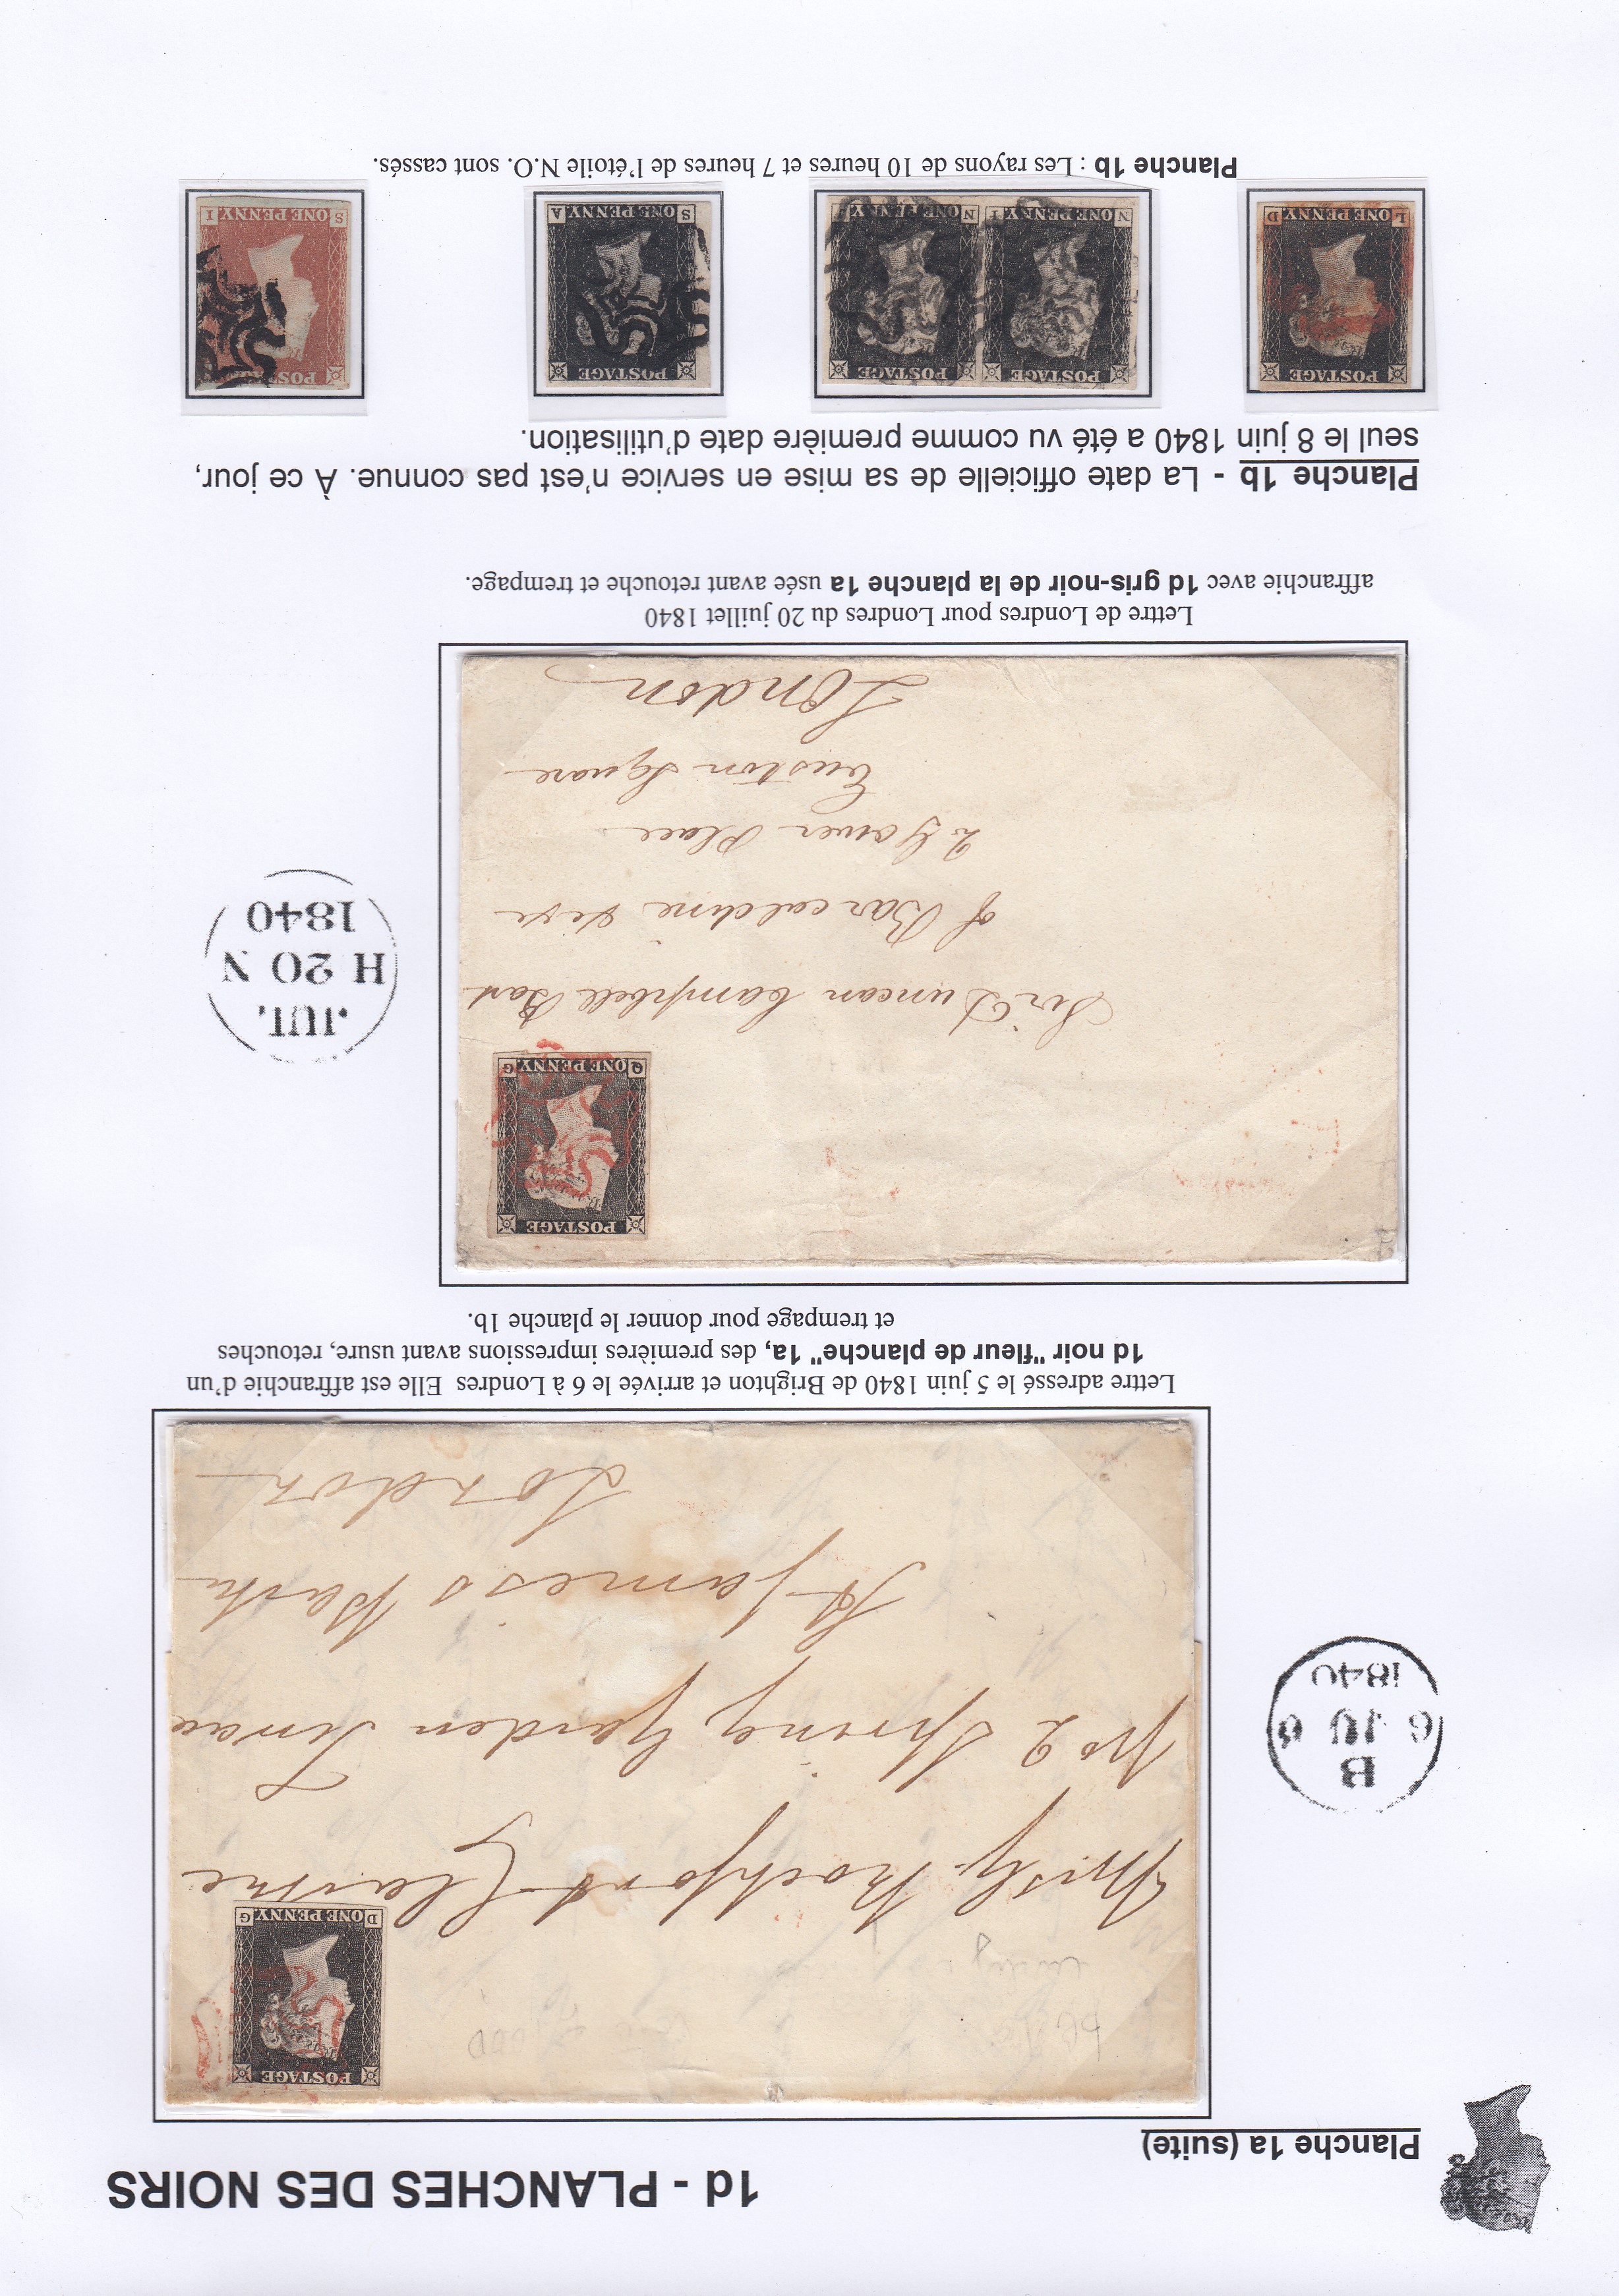 1d - PLANCHES DES NOIRS
Planche 1a (suite)
POSTAGE
D ONE PENNY G
early
Rochfort Clarke
No 2 Spring Garden Terrace
St James's Park
London
B
6 JU 6
1840
Lettre adressé le 5 juin 1840 de Brighton et arrivée le 6 à Londres Elle est affranchie d'un
1d noir "fleur de planche" 1a, des premières impressions avant usure, retouches
et trempage pour donner le planche 1b.
POSTAGE
Q ONE PENNY G
Sir Duncan Campbell Bart
of Barcaldine
2 Gower Place
Euston Square
London
JUL
H 20 N
1840
Lettre de Londres pour Londres du 20 juillet 1840
affranchie avec 1d gris-noir de la planche 1a usée avant retouche et trempage.
Planche 1b - La date officielle de sa mise en service n'est pas connue. À ce jour,
seul le 8 juin 1840 a été vu comme première date d'utilisation.
POSTAGE
L ONE PENNY D
POSTAGE POSTAGE
N ONE PENNY I N ONE PENNY J
POSTAGE
S ONE PENNY A
POSTAGE
S ONE PENNY I
Planche 1b : Les rayons de 10 heures et 7 heures de l'étoile N.O. sont cassés.